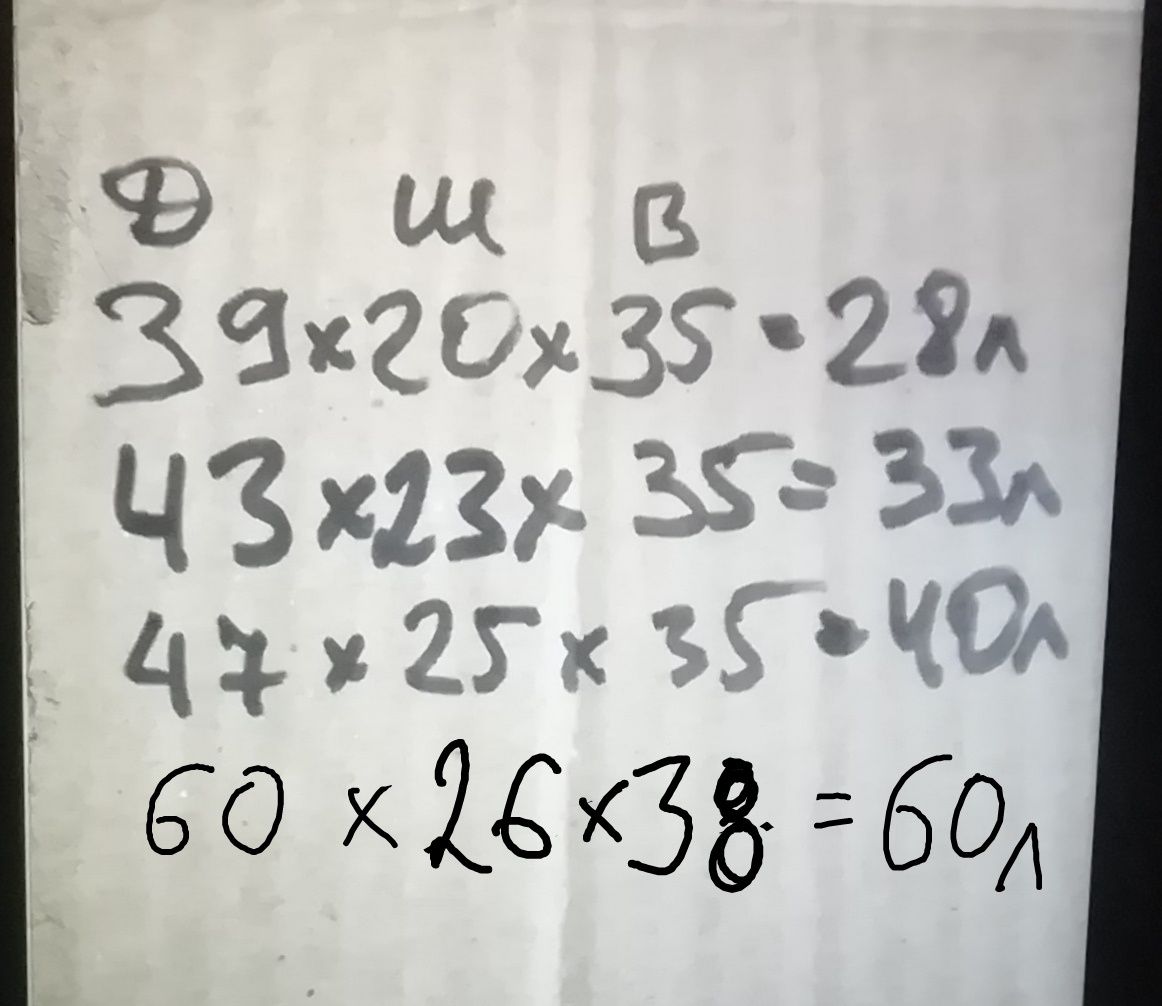 Д Ш В
39x20x35=28л
43x23x35=33л
47x25x35=40л
60x26x38=60л